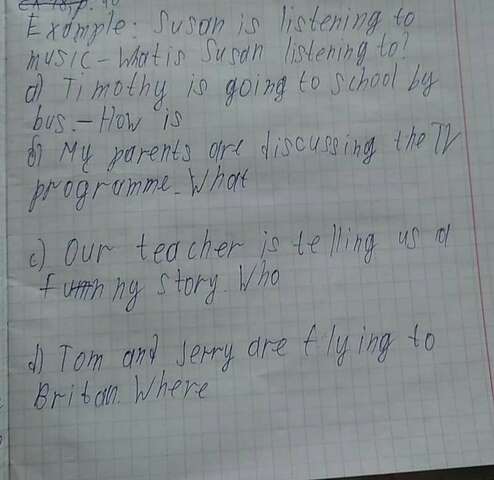 Example: Susan is listening to
music - What is Susan listening to?
a) Timothy is going to school by
bus. - How is
b) My parents are discussing the TV
programme. What
c) Our teacher is telling us a
funny story. Who
d) Tom and Jerry are flying to
Britan. Where